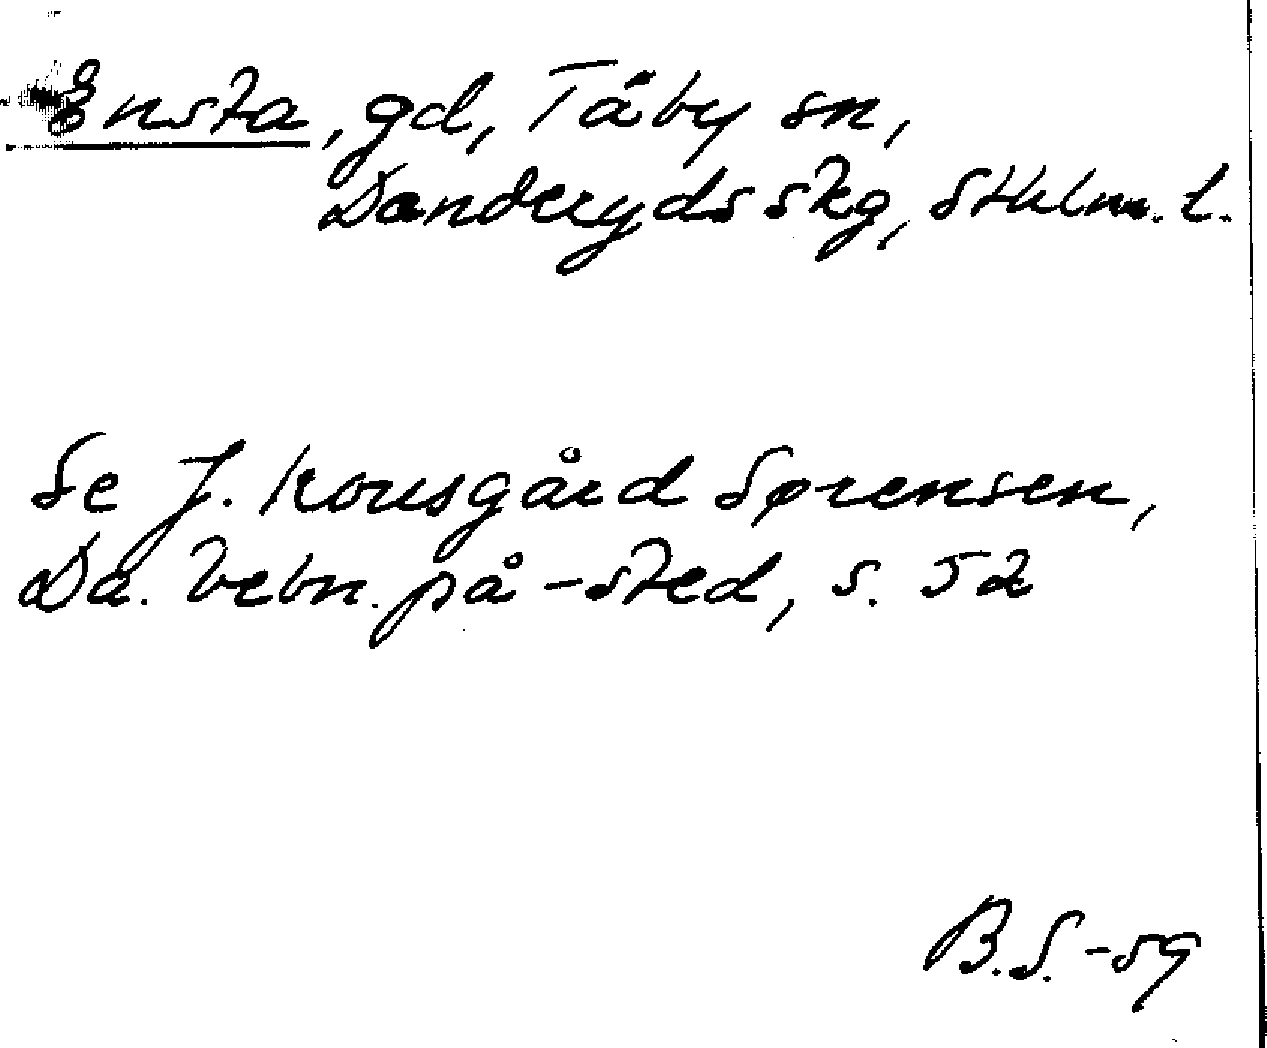 Ensta, gd, Täby sn,
Danderyds skg, Sthlm. l.
Se J. Kousgård Sørensen,
Da. bebn. på -sted, s. 52
B.S. -59